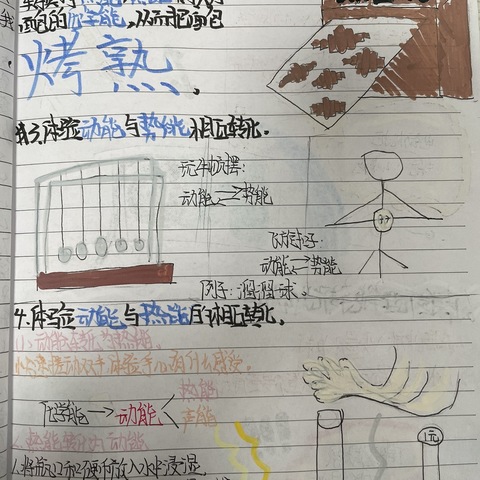 面包的化学能,从而把面包
烤熟。
3.体验动能与势能相互转化。
玩牛顿摆:
动能⇌势能
飞旋球子:
动能⇌势能
例子:溜溜球。
4.体验动能与热能的相互转化。
(1)动能转变为热能。
双手 体验手心有什么感受。
化学能→动能<
热能
声能
2.热能转化为动能
1.将瓶口和硬币放入水中浸湿
1元